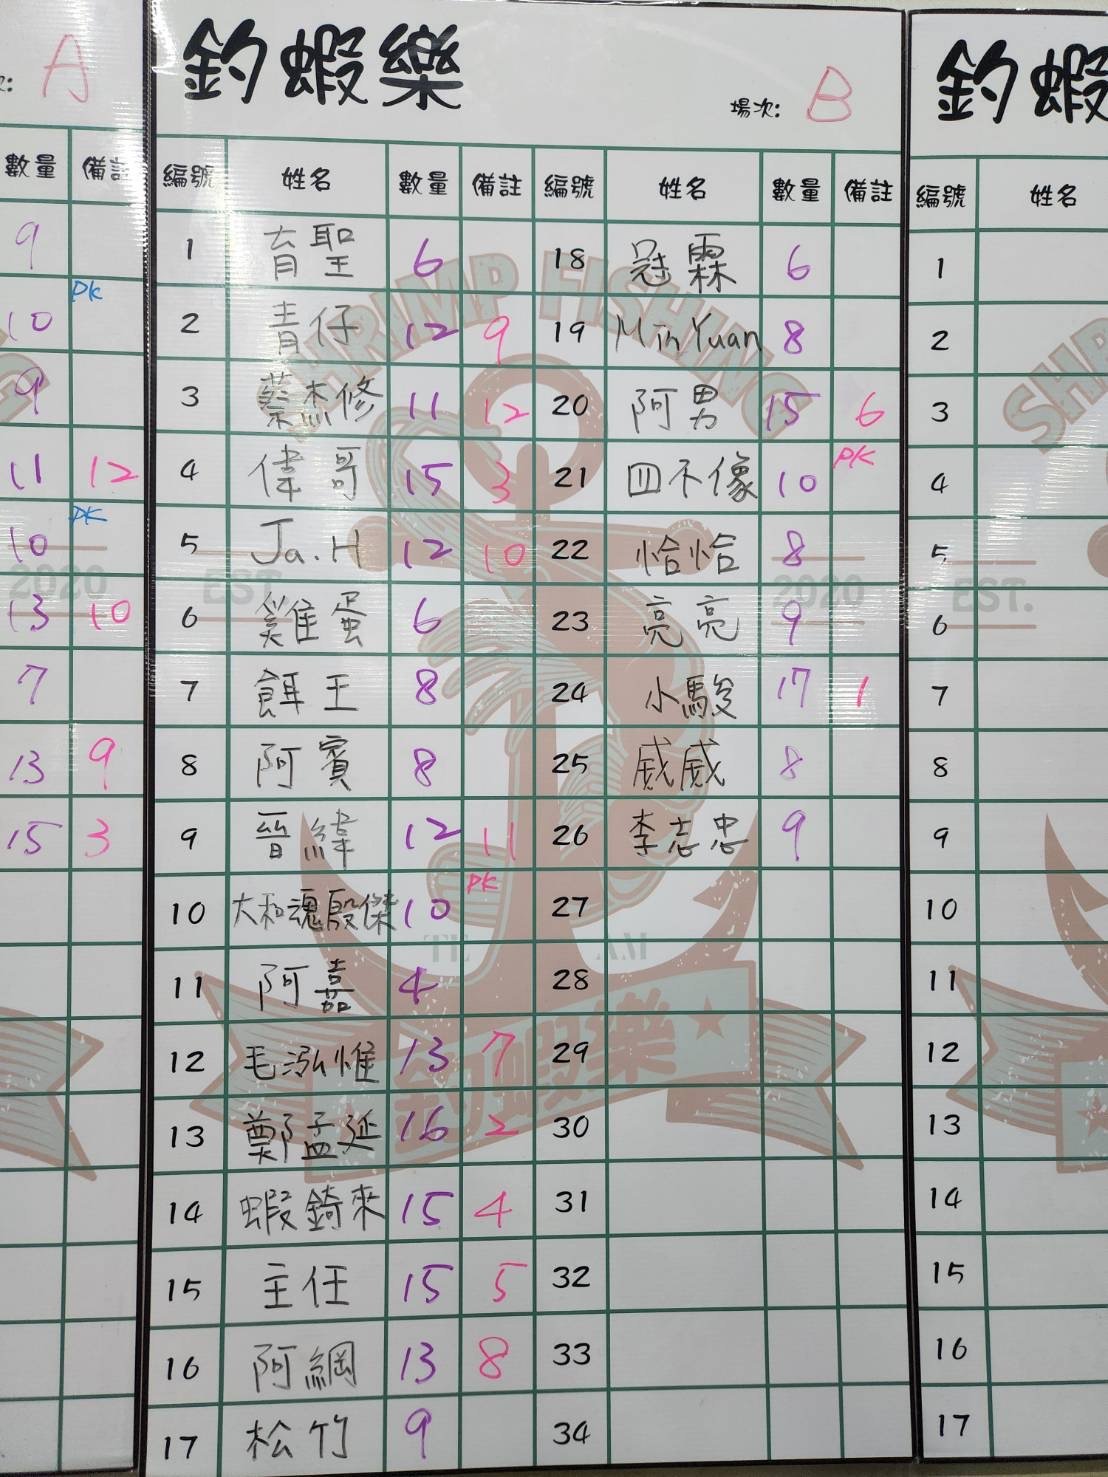 釣蝦樂
場次: B
編號 姓名 數量 備註 編號 姓名 數量 備註
1 育聖 6 18 冠霖 6
2 青仔 12 9 19 Min Yuan 8
3 蔡杰修 11 12 20 阿男 15 6
4 偉哥 15 3 21 四不像 10 PK
5 Ja.H 12 10 22 恰恰 8
6 雞蛋 6 23 亮亮 9
7 餌王 8 24 小駿 17 1
8 阿賓 8 25 威威 8
9 晉緯 12 11 26 李志忠 9
10 大和魂殷傑 10 PK 27
11 阿嘉 4 28
12 毛泓惟 13 7 29
13 鄭孟延 16 2 30
14 蝦錡來 15 4 31
15 主任 15 5 32
16 阿綱 13 8 33
17 松竹 9 34
SHRIMP FISHING
EST. 2020
TEAM
釣蝦樂
: A
數量 備註
9
10 PK
9
11 12
10 PK
13 10
7
13 9
15 3
2020
釣蝦
編號 姓名
1
2
3
4
5
6
7
8
9
10
11
12
13
14
15
16
17
SHR
EST.